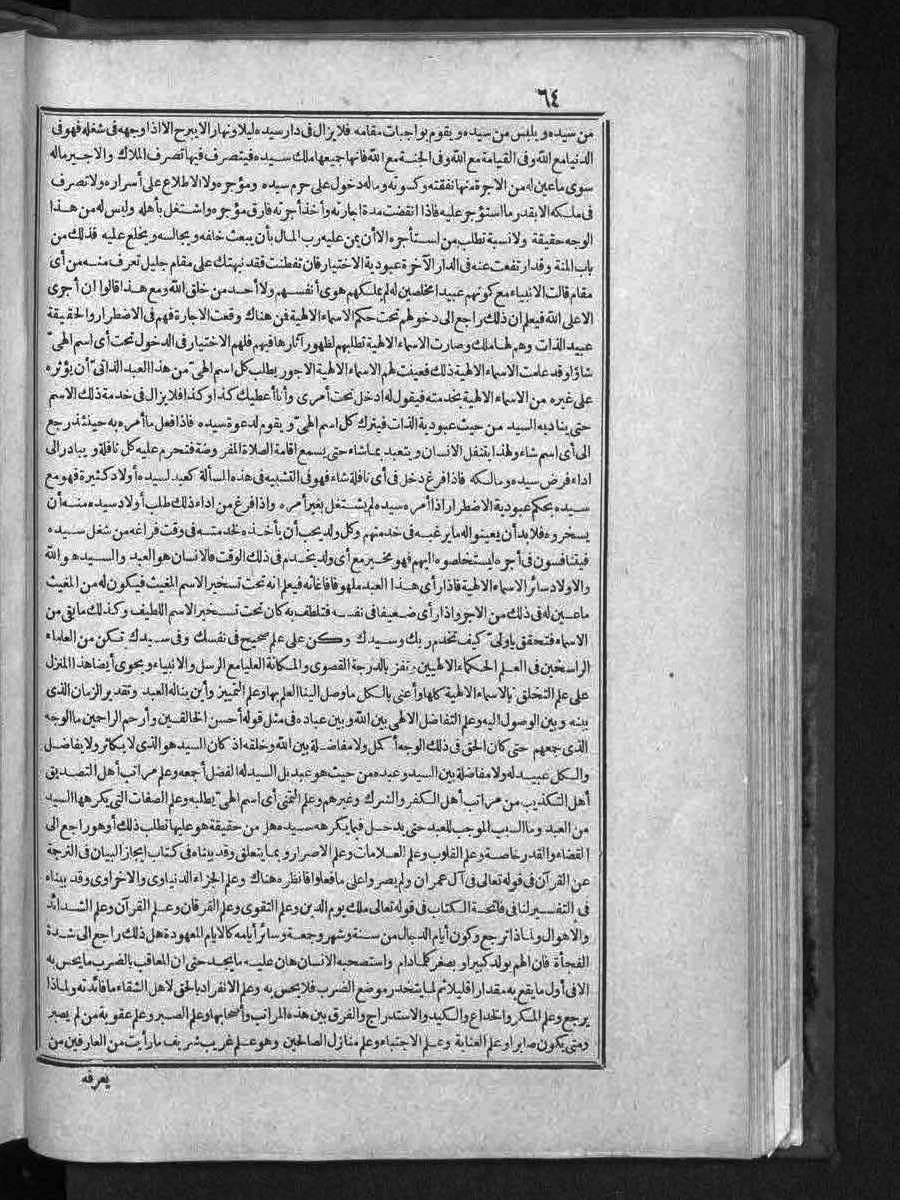 ٦٤
من سيده ويلبس من سيده ويقوم بواجبات مقامه فلا يزال في دار سيده ليلا ونهارا لا يبرح الا اذا وجهه في شغله فهو في
الدنيا مع الله وفي القيامة مع الله وفي الجنة مع الله فانها جميعها ملك سيده فيتصرف فيها تصرف الملاك والاجير ماله
سوى ما عين له من الاجرة منها نفقته وكسوته وماله دخول على حرم سيده ومؤجره ولا الاطلاع على أسراره ولا تصرف
في ملكه الا بقدر ما استؤجر عليه فاذا انقضت مدة اجارته وأخذ أجرته فارق مؤجره واشتغل بأهله وليس له من هذا
الوجه حقيقة ولا نسبة تطلب من استأجره الا أن يمن عليه رب المال بأن يبعث خلفه ويجالسه ويخلع عليه فذلك من
باب المنة وقد ارتفعت عنه في الدار الآخرة عبودية الاختيار فان تفطنت فقد نبهتك على مقام جليل تعرف منه من أي
مقام قالت الانبياء مع كونهم عبيدا مخلصين له لم يملكهم هوى أنفسهم ولا أحد من خلق الله ومع هذا قالوا ان أجرى
الا على الله فيعلم ان ذلك راجع الى دخولهم تحت حكم الاسماء الالهية فمن هناك وقعت الاجارة فهم في الاضطرار والحقيقة
عبيد الذات وهم لها ملك وصارت الاسماء الالهية تطلبهم لظهور آثارها فيهم فلهم الاختيار في الدخول تحت أي اسم الهي
شاؤا وقد علمت الاسماء الالهية ذلك فعينت لهم الاسماء الالهية الاجور يطلب كل اسم الهي من هذا العبد الذاتي أن يؤثره
على غيره من الاسماء الالهية بخدمته فيقول له ادخل تحت أمري وأنا أعطيك كذا وكذا فلا يزال في خدمة ذلك الاسم
حتى يناديه السيد من حيث عبودية الذات فيترك كل اسم الهي ويقوم لدعوة سيده فاذا فعل ما أمره به حينئذ رجع
الى أي اسم شاء ولهذا يتنفل الانسان ويتعبد بما شاء حتى يسمع اقامة الصلاة المفروضة فتحرم عليه كل نافلة ويبادر الى
اداء فرض سيده ومالكه فاذا فرغ دخل في أي نافلة شاء فهو في التشبيه في هذه المسألة كعبد لسيده أولاد كثيرة فهو مع
سيده بحكم عبودية الاضطرار اذا أمره سيده لم يشتغل بغير أمره واذا فرغ من اداء ذلك طلب أولاد سيده منه أن
يسخروه فلا بد أن يعينوا له ما يرغبه في خدمتهم وكل ولد يحب أن يأخذه لخدمته في وقت فراغه من شغل سيده
فيتنافسون في أجره ليستخلصوه اليهم فهو مخير مع أي ولد يخدم في ذلك الوقت فالانسان هو العبد والسيد هو الله
والاولاد سائر الاسماء الالهية فاذا رأى هذا العبد ملهوفا فاغاثه فيعلم انه تحت تسخير الاسم المغيث فيكون له من المغيث
ما عين له في ذلك من الاجر واذا رأى ضعيفا في نفسه فتلطف به كان تحت تسخير الاسم اللطيف وكذلك ما بقي من
الاسماء فتحقق يا ولي كيف تخدم ربك وسيدك وكن على علم صحيح في نفسك وفي سيدك تكن من العلماء
الراسخين في العلم الحكماء الالهيين وتفز بالدرجة القصوى والمكانة العليا مع الرسل والانبياء ويحوى أيضا هذا المنزل
على علم التخلق بالاسماء الالهية كلها وأعني بالكل ما وصل الينا العلم بها وعلم التمييز وأين يناله العبد وتقدير الزمان الذي
بينه وبين الوصول اليه وعلم التفاضل الالهي بين الله وبين عباده في مثل قوله أحسن الخالقين وأرحم الراحمين ما الوجه
الذي جمعهم حتى كان الحق في ذلك الوجه أكمل ولا مفاضلة بين الله وخلقه اذ كان السيد هو الذي لا يكاثر ولا يفاضل
والكل عبيد له ولا مفاضلة بين السيد وعبده من حيث هو عبد بل السيد له الفضل أجمعه وعلم مراتب أهل التصديق
أهل التكذيب من مراتب أهل الكفر والشرك وغيرهم وعلم التمني أي اسم الهي يطلبه وعلم الصفات التي يكرهها السيد
من العبد وما السبب الموجب للعبد حتى يدخل فيما يكرهه سيده هل من حقيقة هو عليها تطلب ذلك أو هو راجع الى
القضاء والقدر خاصة وعلم القلوب وعلم العلامات وعلم الاصرار وبما يتعلق وقد بيناه في كتاب ايجاز البيان في الترجمة
عن القرآن في قوله تعالى في آل عمران ولم يصروا على ما فعلوا فانظره هناك وعلم الجزاء الدنياوي والاخراوي وقد بيناه
في التفسير لنا في فاتحة الكتاب في قوله تعالى ملك يوم الدين وعلم التقوى وعلم الفرقان وعلم القرآن وعلم الشدائد
والاهوال ولماذا ترجع وكون أيام الدجال من سنة وشهر وجمعة وسائر أيامه كالايام المعهودة هل ذلك راجع الى شدة
الفجأة فان الهم يولد كبيرا ويصغر كلما دام واستصحبه الانسان هان عليه ما يجد حتى ان المعاقب بالضرب ما يحس به
الا في أول ما يقع به مقدارا قليلا ثم لما يتخدر موضع الضرب فلا يحس به وعلم الانفراد بالحق لاهل الشقاء ما فائدته ولماذا
يرجع وعلم المكر والخداع والكيد والاستدراج والفرق بين هذه المراتب وأصحابها وعلم الصبر وعلم عقوبة من لم يصبر
ومتى يكون صابرا وعلم العناية وعلم الاجتباء وعلم منازل الصالحين وهو علم غريب شريف ما رأيت من العارفين من
يعرفه